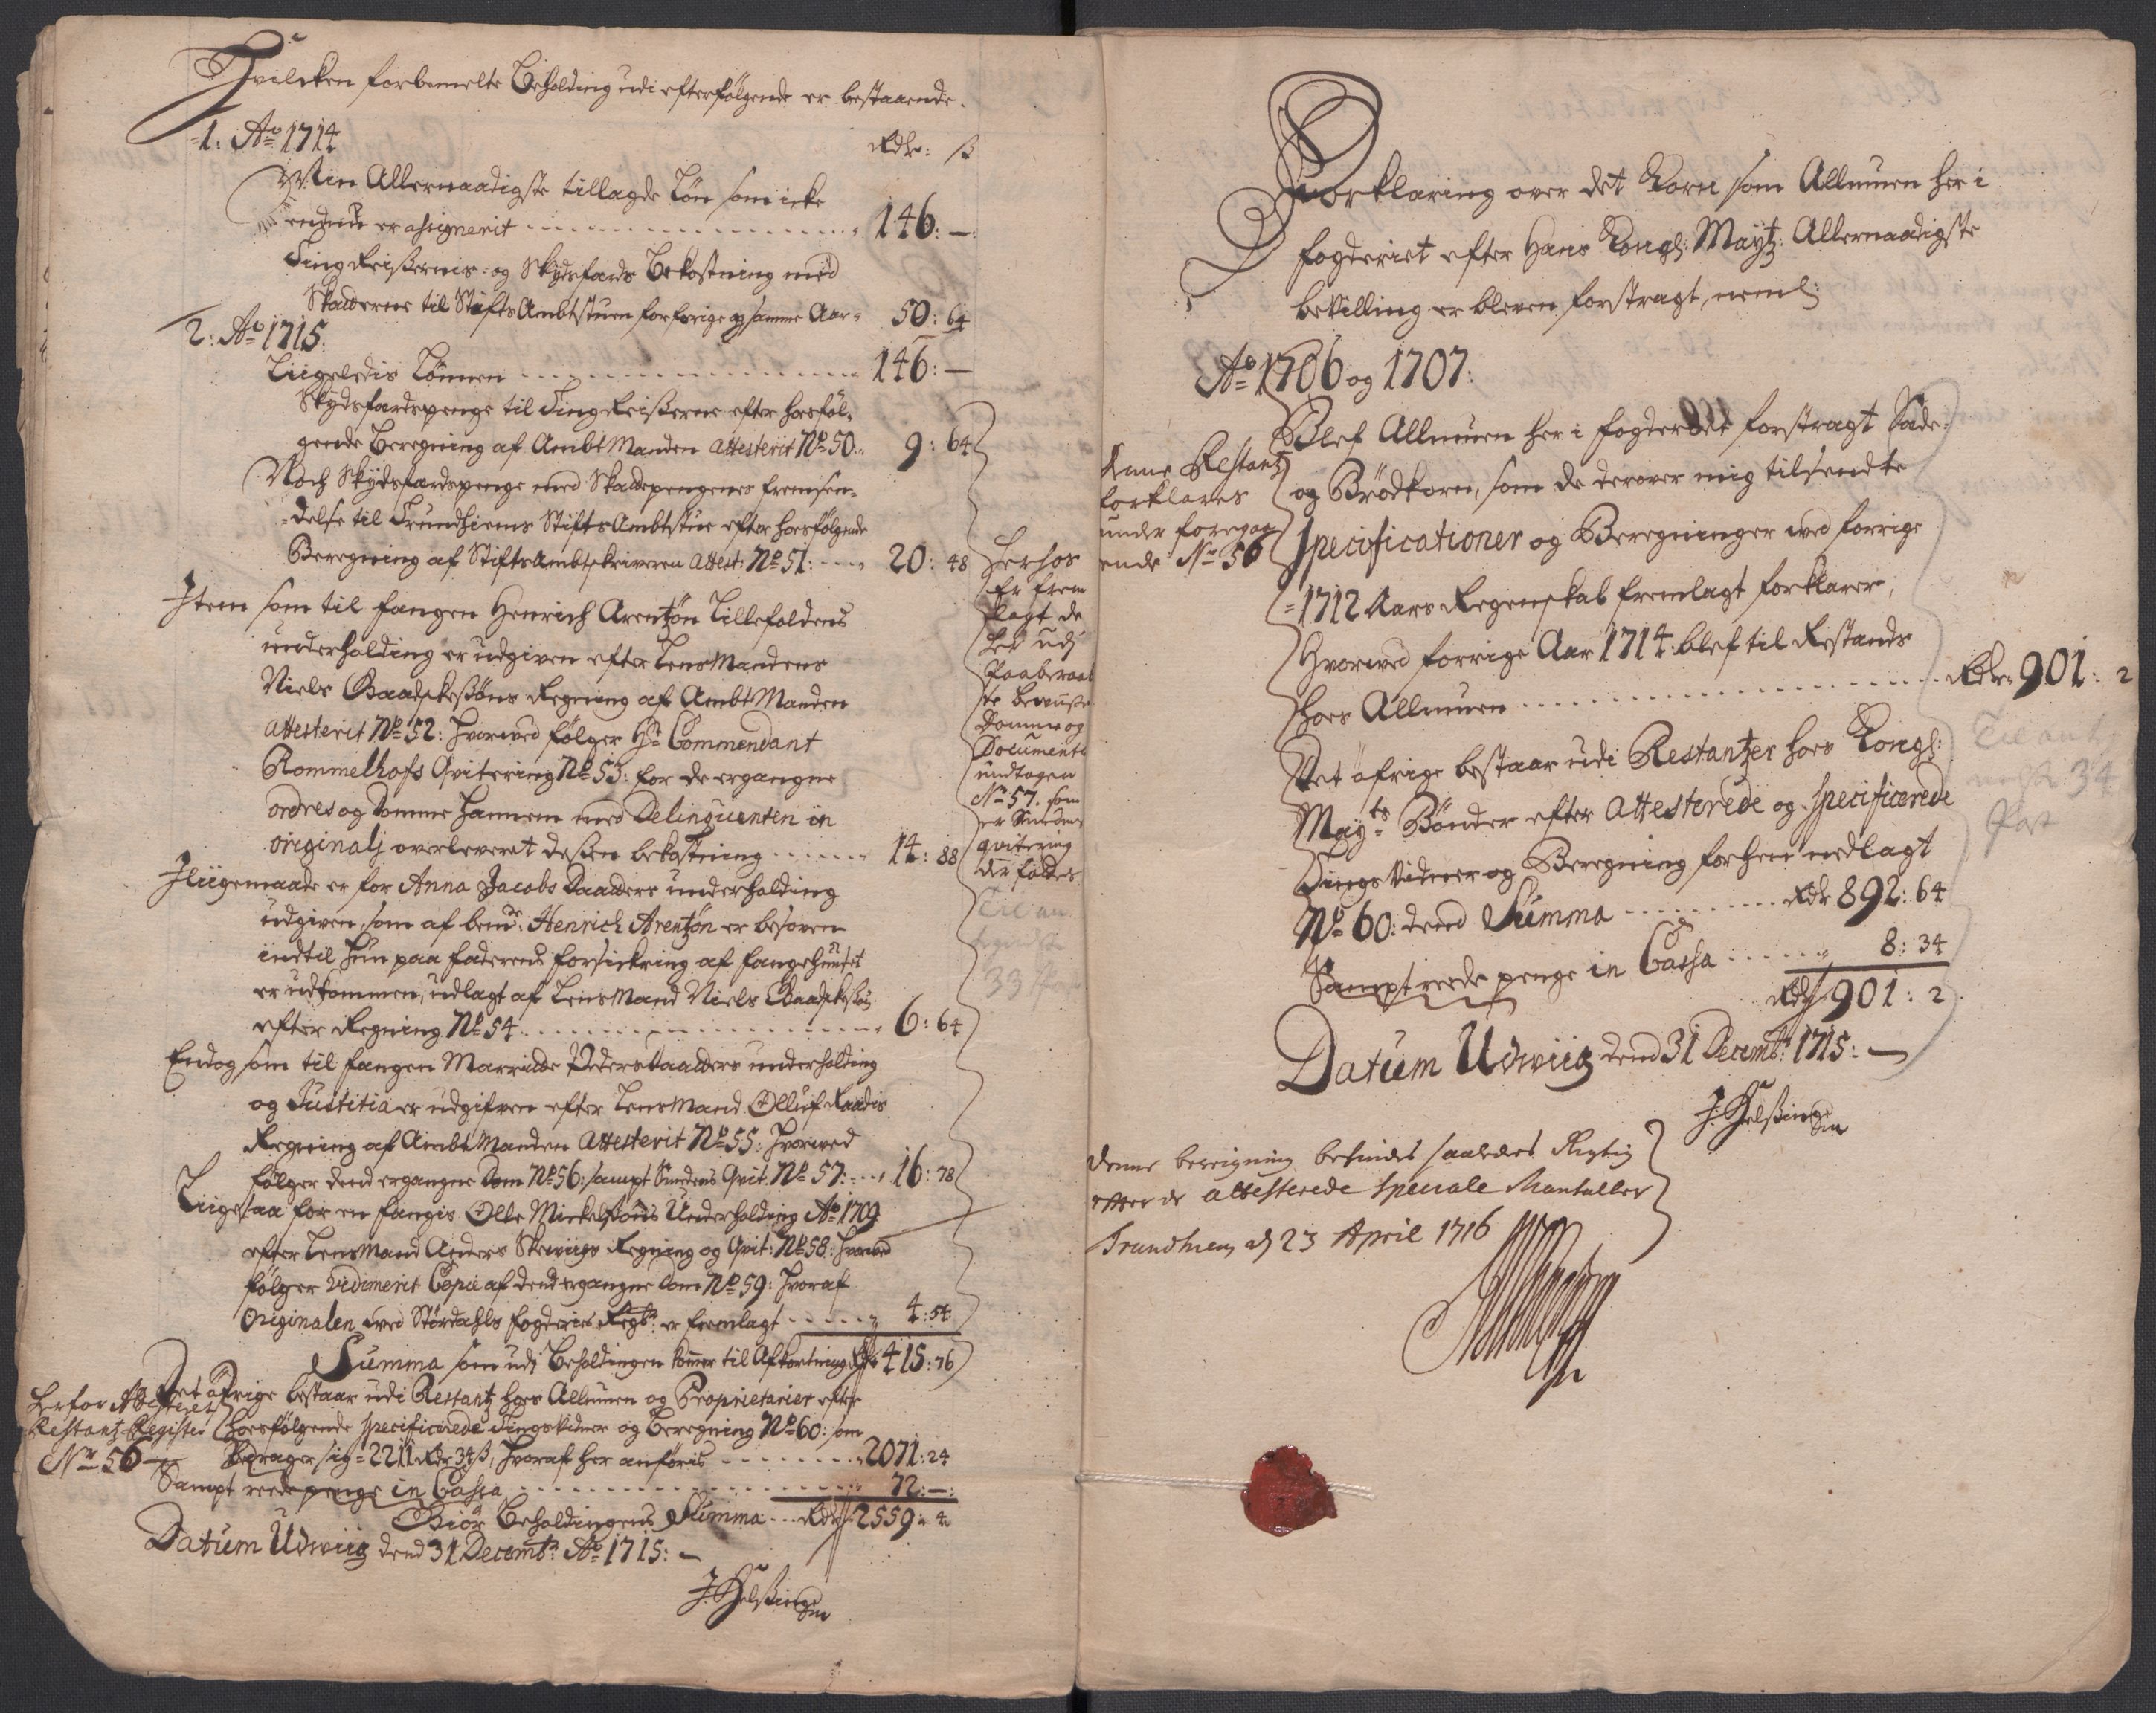 Hvilcken forbemelte Beholding udi efterfølgende er bestaaende.
1. Ao 1714
Rdlr: ß
Min Allernaadigste tillagde Løn som icke
endnu er assignerit 146: —
Ting Reißernis og Skydsfærds Bekostning med
Skatterne til StiftsAmbtstuen for forige og samme Aar 50: 64
2: Ao 1715:
Liigeledis Lønnen 146: —
Skydsfærdspenge til TingReißerne efter hosføl-
gende Beregning af AmbtManden Attesterit No 50: 9: 64
Noch Skydsfærdspenge med Skattepengenes fremsen-
delse til Trundhiems StiftsAmbtstue efter hosfølgende
Beregning af StiftsAmbtskriveren Attest: No 51: 20: 48
Item som til fangen Henrich Arentzøn Lillefoldens
underholding er udgiven efter LensMandens
Niels Baadskeßøns Regning af AmbtManden
Attesterit No 52: Hvorved følger Hr Commendant
Rommelhofs Qvitering No 53: for de ergangne
ordres og Domme hannem med Delinquenten in
originalj overleveret deßen bekostning 14: 88
Iliigemaade er for Anna Jacobs Daatters underholding
udgiven, som af bemte: Henrich Arentzøn er besoven
indtil hun paa faderens forsickring af fangehuuset
er udkommen, udlagt af LensMand Niels Baadskeßøn
efter Regning No 54: 6: 64
Endog som til fangen Marritte PedersDaatters underholding
og Justitia er udgifven efter LensMand Olluf Raadis
Regning af AmbtManden Attesterit No 55: Hvorved
følger dend ergangne Dom No 56: sampt Smedens Qvit: No 57: 16: 78
Liigesaa for en fangis Olle Mickelßøns Underholding Ao 1709
efter LensMand Anders Skreviigs Regning og Qvit: No 58: Hvorved
følger Vidimerit Copie af dend ergangne Dom No 59: Hvoraf
Originalen ved Størdahls fogderies Regsk: er fremlagt 4: 54
Summa som udj Beholdingen kommer til Afkortning Rdr 415: 76
Herhos
Er frem
lagt de
her udj
Paaberaab
te beviiser
Domme og
Documente
undtagen
No 57. som
er Smedens
qvitering
der fattes
33
Det øfrige bestaar udi Restantz hoes Allmuen og Proprietarier efter
hoesfølgende specificerede Tingsvidner og Beregning No 60: som
Bedrager sig 2211 Rdr 34 ß, Hvoraf her anføris 2071: 24
Herfor Attesteret
Restantz Register
No 56
Sampt reede penge in Cassa 72: —:
Giør Beholdingens Summa Rdr 2559: 4
Datum Udwiig dend 31 Decembr: Ao 1715: —
J: Helßingßen
Forklaring over det Korn som Allmuen her i
fogderiet efter Hans Kongl: Maytz: Allernaadigste
beVilling er bleven forstragt, neml:
Ao 1706 og 1707:
Blef Allmuen her i fogderiet forstragt Sæde-
og Brødkorn, som de derover mig tilsendte
specificationer og Beregninger ved forrige
1712 Aars Regenskab fremlagt forklarer,
Hvorved forrige Aar 1714 blef til Restands
hoes Allmuen Rdr 901: 2
Denne Restantz
forklares
under foregaa
ende No 56
Det øfrige bestaar udi Restantzer hoes Kongl:
Mayts Bønder efter Attesterede og specificerede
Tings Vidner og Beregning forhen nedlagt
No 60: dend Summa Rdr 892: 64
Sampt reede penge in Cassa 8: 34
Rdr 901: 2
34
Post
Datum Udwiig dend 31 Decembr: 1715: —
J: Helßingßen
Denne bereigning befindes saaledes Rigtig
efter de attesterede speciale Mantaller
Trundhiem d 23 April 1716